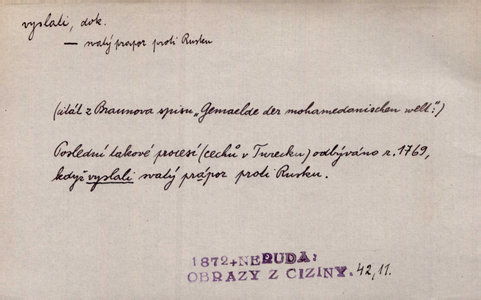 vyslati, dok.
— svatý prápor proti Rusku
(citát z Braunova spisu „Gemaelde der mohamedanischen welt“.)
Poslední takové procesí (cechů v Turecku) odbýváno r. 1769,
když vyslali svatý prápor proti Rusku.
1872+NERUDA:
OBRAZY Z CIZINY. 42,11.